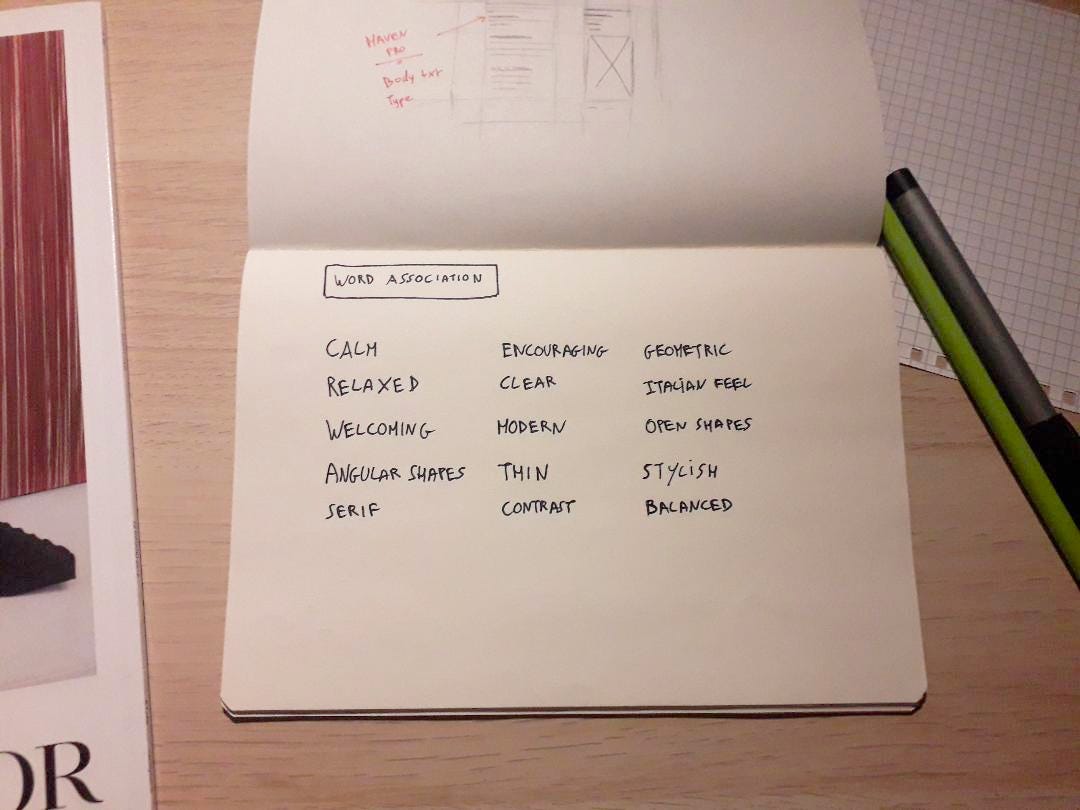 MAVEN
PRO
Body txt
Type
WORD ASSOCIATION
CALM ENCOURAGING GEOMETRIC
RELAXED CLEAR ITALIAN FEEL
WELCOMING MODERN OPEN SHAPES
ANGULAR SHAPES THIN STYLISH
SERIF CONTRAST BALANCED
OR